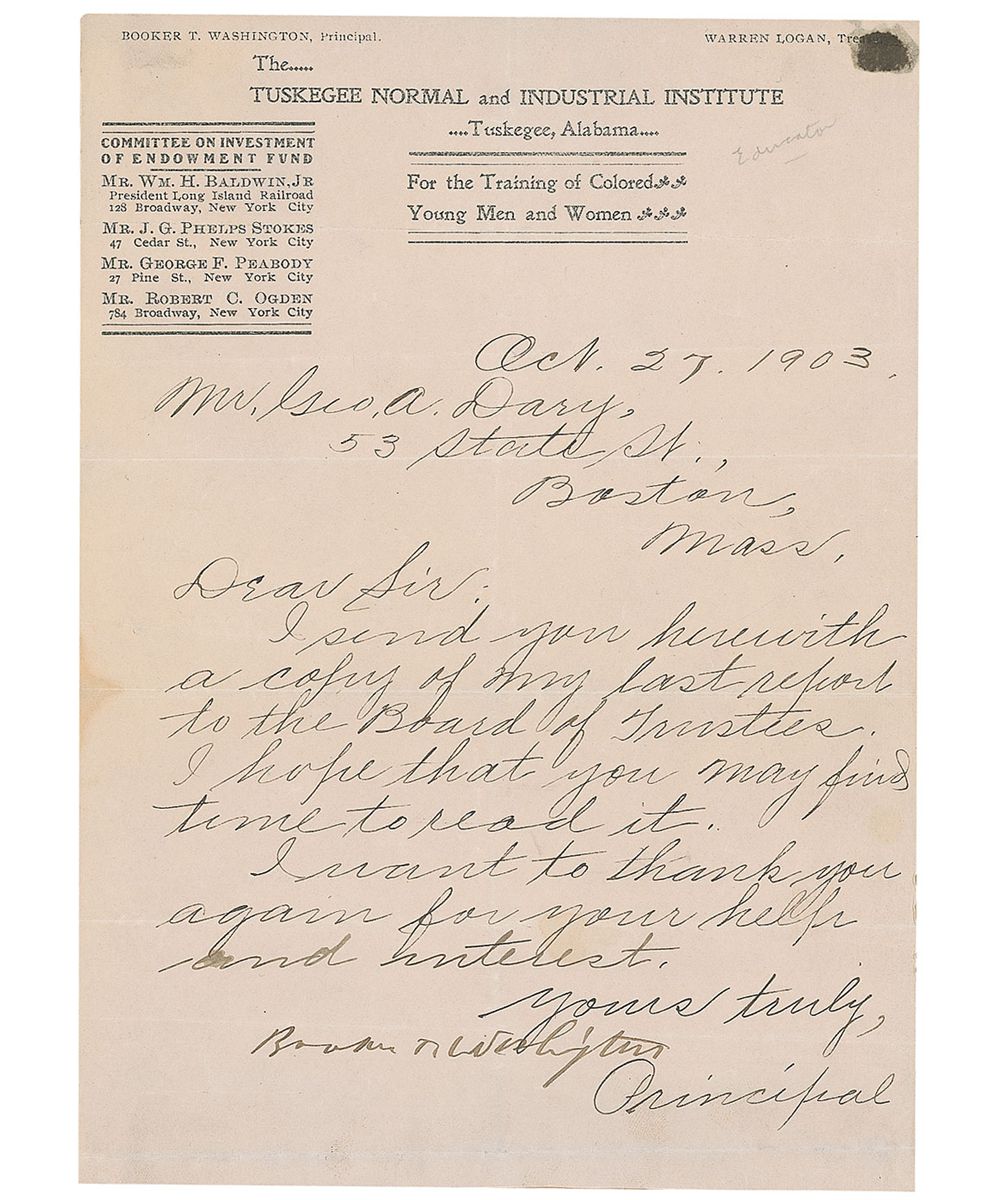 BOOKER T. WASHINGTON, Principal.
WARREN LOGAN,
The.....
TUSKEGEE NORMAL and INDUSTRIAL INSTITUTE
....Tuskegee, Alabama....
Educator
COMMITTEE ON INVESTMENT
OF ENDOWMENT FUND
MR. WM. H. BALDWIN, JR
President Long Island Railroad
128 Broadway, New York City
MR. J. G. PHELPS STOKES
47 Cedar St., New York City
MR. GEORGE F. PEABODY
27 Pine St., New York City
MR. ROBERT C. OGDEN
784 Broadway, New York City
For the Training of Colored
Young Men and Women
Oct. 27. 1903.
Mr. Geo. A. Dary,
53 State St.,
Boston,
Mass.
Dear Sir:
I send you herewith
a copy of my last report
to the Board of Trustees.
I hope that you may find
time to read it.
I want to thank you
again for your help
and interest.
Yours truly,
Booker T. Washington
Principal